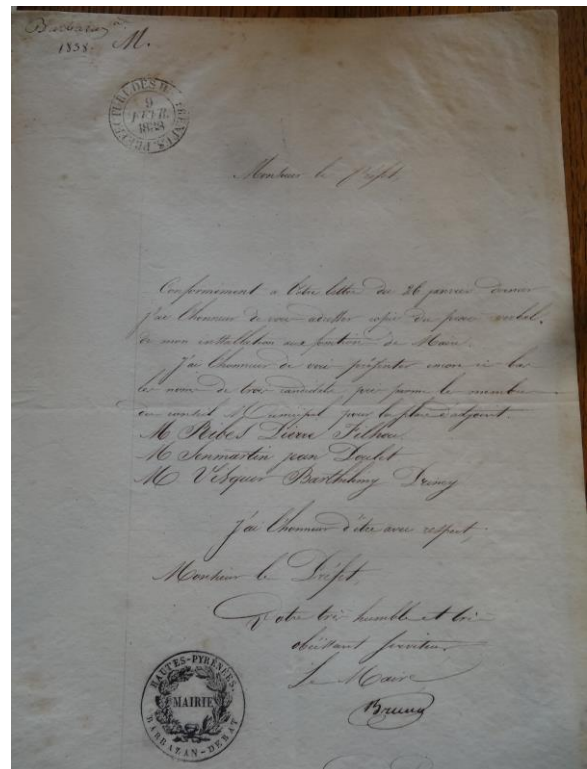 Barbazan
1838. M.
PREFECTURE DES H. PYRENEES
9
FEVR.
1838
Monsieur le Préfet,
Conformement a Votre lettre du 26 janvier dernier
j'ai l'honneur de vous adresser copie du proces verbal
de mon installation aux fonction de Maire.
J'ai l'honneur de vous présenter encore ci bas
les nom de trois candidats pris parmi le membre
du conseil Municipal pour la place d'adjoint.
M Ribes Pierre Filhou
M Senmartin jean Doulet
M Vesquer Barthelimy
j'ai l'honneur d'être avec respect,
Monsieur le Préfet,
Votre très humble et très
obéissant serviteur.
Le Maire
HAUTES-PYRÉNÉES.
MAIRIE
BARBAZAN-DEBAT